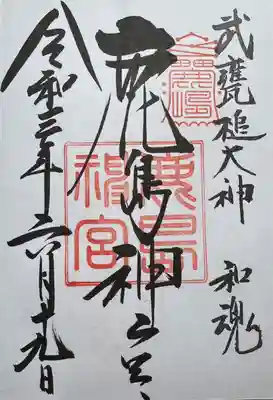 武甕槌大神 和魂
鹿島神宮
鹿島神宮
令和三年六月十九日